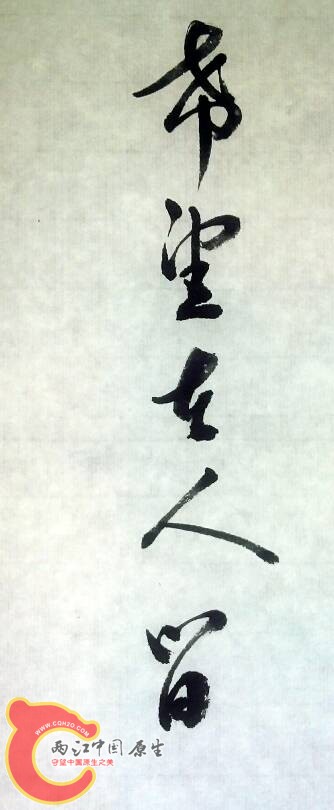 希望在人间
WWW.CQH2O.COM
两江中国 原生
守望中国原生之美